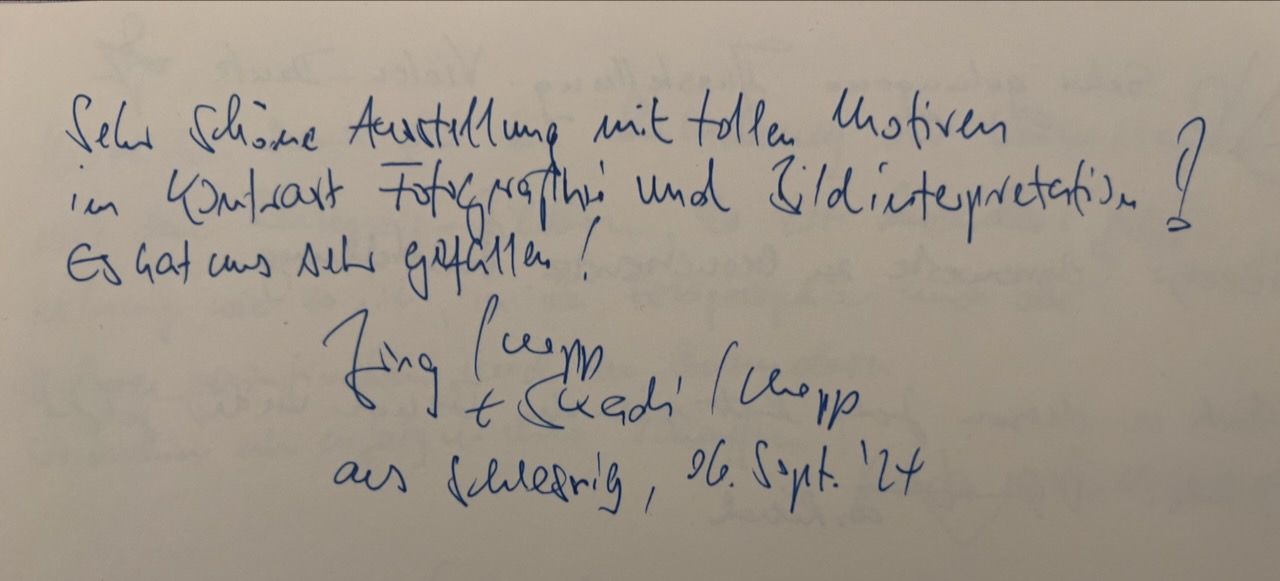 Sehr schöne Ausstellung mit tollen Motiven
im Kontrast Fotographie und Bildinterpretation!
Es hat uns sehr gefallen!
+ Skadi
aus Schleswig, 06. Sept. '24